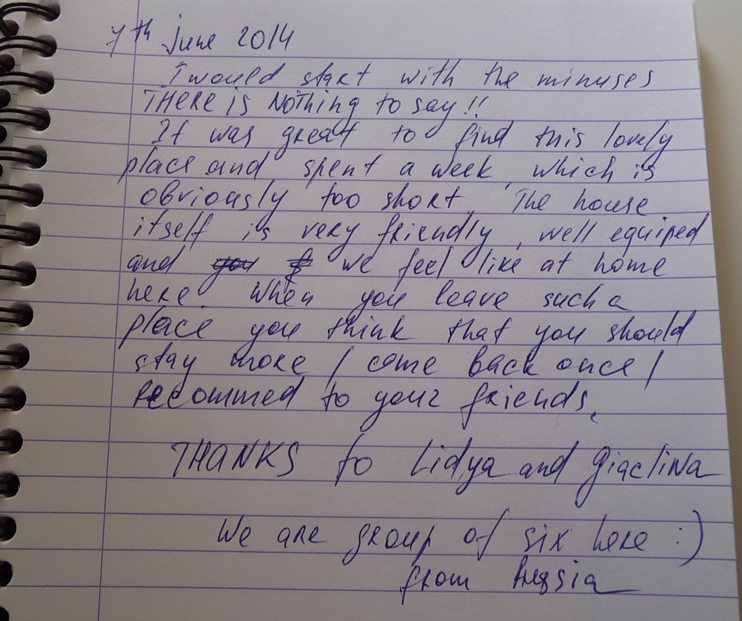 7th june 2014
I would start with the minuses
THERE IS NOTHING to say!!
It was great to find this lovely
place and spent a week, which is
obviously too short. The house
itself is very friendly, well equiped
and we feel like at home
here. When you leave such a
place you think that you should
stay more / come back once /
recommed to your friends.
THANKS to Lidya and
We are group of six here :)
from Russia